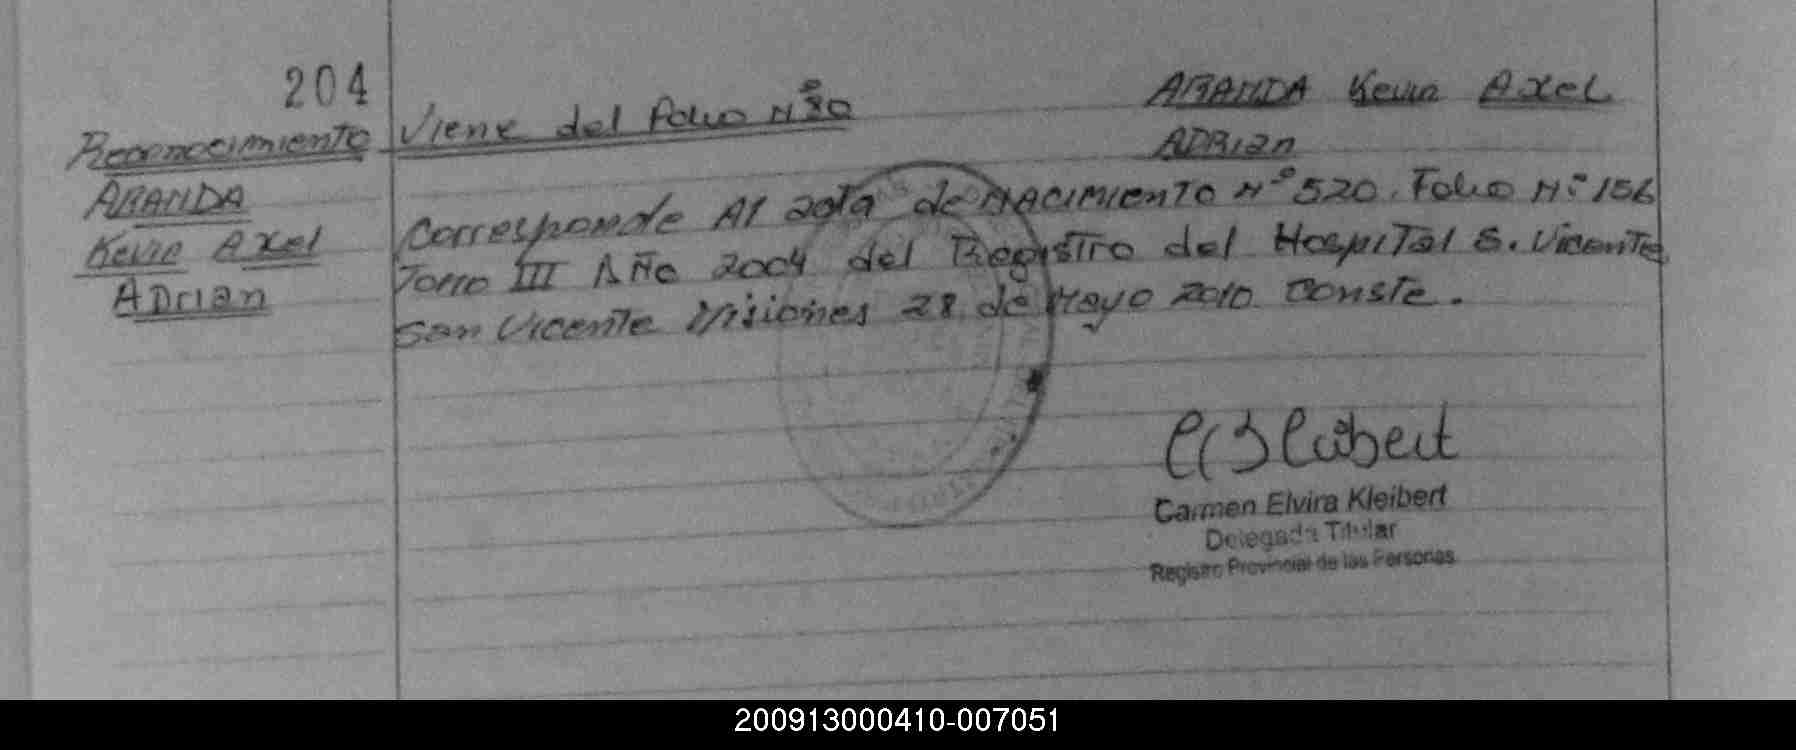 204
Viene del Folio Nº 80
ARANDA Kevin Axel
ADRian
Reconocimiento
ARANDA
Kevin Axel
ADrian
Corresponde Al acta de NACIMIENTO Nº 520. Folio Nº 156
Tomo III Año 2004 del Registro del Hospital S. Vicente
San Vicente Misiones 28 de Mayo 2010 Conste.
Carmen Elvira Kleibert
Delegada Titular
Registro Provincial de las Personas
200913000410-007051